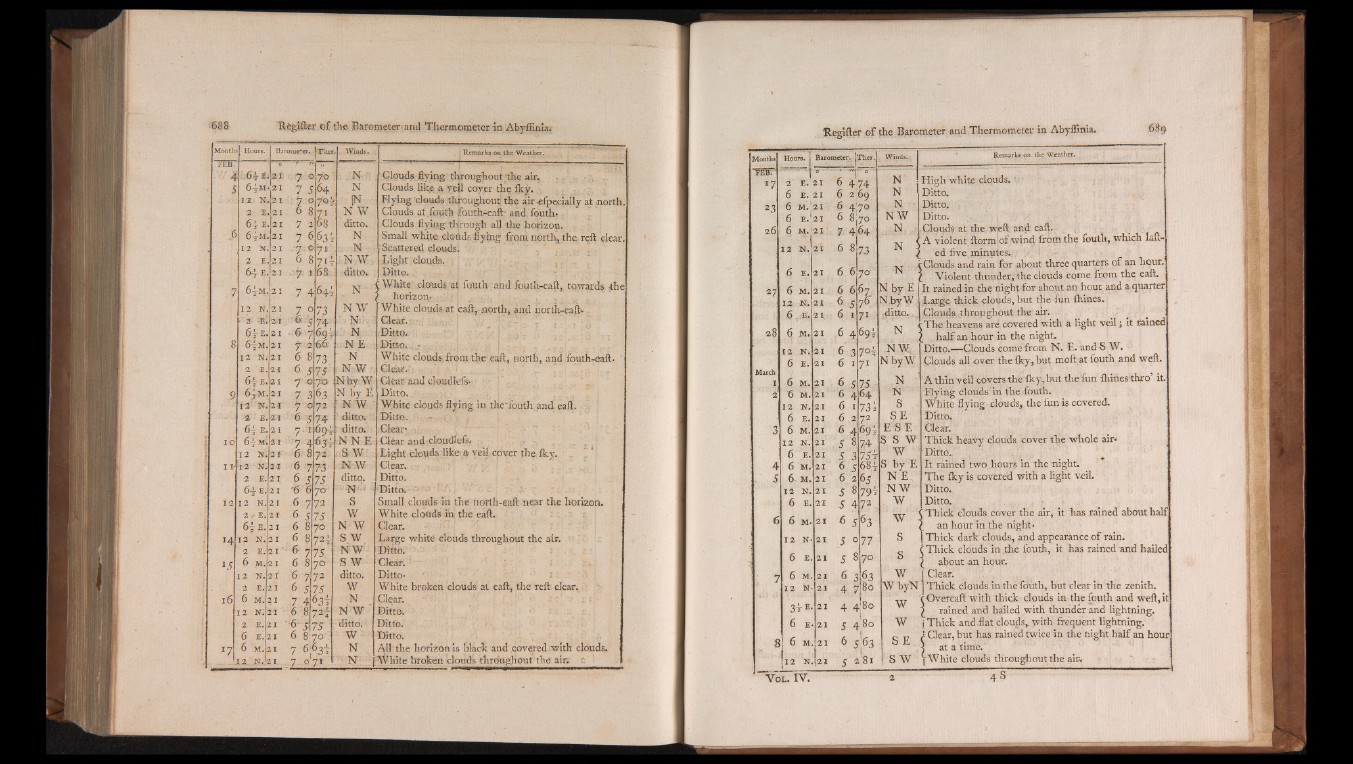 688 Regiſter of the Barometer and Thermometer in Abyſſinia.
Months Hours. Barometer. Ther. Winds. Remarks on the Weather.
FEB. ° ′ ″ °
4 6½ E. 21 7 0 70 N Clouds flying throughout the air.
5 6½ M. 21 7 5 64 N Clouds like a veil cover the ſky.
12 N. 21 7 0 70½ N Flying clouds throughout the air eſpecially at north.
2 E. 21 6 8 71 N W Clouds at ſouth ſouth-eaſt and ſouth.
6½ E. 21 7 2 68 ditto. Clouds flying through all the horizon.
6 6½ M. 21 7 6 63½ N Small white clouds flying from north, the reſt clear.
12 N. 21 7 0 71 N Scattered clouds.
2 E. 21 6 8 71½ N W Light clouds.
6½ E. 21 7 1 68 ditto. Ditto.
7 6½ M. 21 7 4 64½ N White clouds at ſouth and ſouth-eaſt, towards the
horizon.
12 N. 21 7 0 73 N W White clouds at eaſt, north, and north-eaſt.
2 E. 21 6 5 74 N Clear.
6½ E. 21 6 7 69½ N Ditto.
8 6½ M. 21 7 2 66 N E Ditto.
12 N. 21 6 8 73 N White clouds from the eaſt, north, and ſouth-eaſt.
2 E. 21 6 5 75 N W Clear.
6½ E. 21 7 0 70 N by W Clear and cloudleſs.
9 6½ M. 21 7 3 63 N by E Ditto.
12 N. 21 7 0 72 N W White clouds flying in the ſouth and eaſt.
2 E. 21 6 5 74 ditto. Ditto.
6½ E. 21 7 1 69½ ditto. Clear.
10 6½ M. 21 7 4 63½ N N E Clear and cloudleſs.
12 N. 21 6 8 72 S W Light clouds like a veil cover the ſky.
11 12 N. 21 6 7 73 N W Clear.
2 E. 21 6 5 75 ditto. Ditto.
6½ E. 21 6 6 70 N Ditto.
12 12 N. 21 6 7 72 S Small clouds in the north-eaſt near the horizon.
2 E. 21 6 5 75 W White clouds in the eaſt.
6½ E. 21 6 8 70 N W Clear.
14 12 N. 21 6 8 72½ S W Large white clouds throughout the air.
2 E. 21 6 7 75 N W Ditto.
15 6 M. 21 6 8 70 S W Clear.
12 N. 21 6 7 72 ditto. Ditto.
2 E. 21 6 5 75 W White broken clouds at eaſt, the reſt clear.
16 6 M. 21 7 4 63½ N Clear.
12 N. 21 6 8 72½ N W Ditto.
2 E. 21 6 5 75 ditto. Ditto.
6 E. 21 6 8 70 W Ditto.
17 6 M. 21 7 6 63½ N All the horizon is black and covered with clouds.
12 N. 21 7 0 71 N White broken clouds throughout the air.
Regiſter of the Barometer and Thermometer in Abyſſinia. 689
Months Hours. Barometer. Ther. Winds. Remarks on the Weather.
FEB. ° ′ ″ °
17 2 E. 21 6 4 74 N High white clouds.
6 E. 21 6 2 69 N Ditto.
23 6 M. 21 6 4 70 N Ditto.
6 E. 21 6 8 70 N W Ditto.
26 6 M. 21 7 4 64 N Clouds at the weſt and eaſt.
12 N. 21 6 8 73 N A violent ſtorm of wind from the ſouth, which laſt-
ed five minutes.
6 E. 21 6 6 70 N Clouds and rain for about three quarters of an hour.
Violent thunder, the clouds come from the eaſt.
27 6 M. 21 6 6 67 N by E It rained in the night for about an hour and a quarter
12 N. 21 6 5 76 N by W Large thick clouds, but the ſun ſhines.
6 E. 21 6 1 71 ditto. Clouds throughout the air.
28 6 M. 21 6 4 69½ N The heavens are covered with a light veil; it rained
half an hour in the night.
12 N. 21 6 3 70½ N W. Ditto.—Clouds come from N. E. and S W.
6 E. 21 6 1 71 N by W Clouds all over the ſky, but moſt at ſouth and weſt.
March
1 6 M. 21 6 5 75 N A thin veil covers the ſky, but the ſun ſhines thro' it.
2 6 M. 21 6 4 64 N Flying clouds in the ſouth.
12 N. 21 6 1 73½ S White flying clouds, the ſun is covered.
6 E. 21 6 2 72 S E Ditto.
3 6 M. 21 6 4 69½ E S E Clear.
12 N. 21 5 8 74 S S W Thick heavy clouds cover the whole air.
6 E. 21 5 3 75½ W Ditto.
4 6 M. 21 6 5 68½ S by E It rained two hours in the night.
5 6 M. 21 6 2 65 N E The ſky is covered with a light veil.
12 N. 21 5 8 79½ N W Ditto.
6 E. 21 5 4 72 W Ditto.
6 6 M. 21 6 5 63 W Thick clouds cover the air, it has rained about half
an hour in the night.
12 N. 21 5 0 77 S Thick dark clouds, and appearance of rain.
6 E. 21 5 8 70 S Thick clouds in the ſouth, it has rained and hailed
about an hour.
7 6 M. 21 6 3 63 W Clear.
12 N. 21 4 7 80 W by N Thick clouds in the ſouth, but clear in the zenith.
3½ E. 21 4 4 80 W Overcaſt with thick clouds in the ſouth and weſt, it
rained and hailed with thunder and lightning.
6 E. 21 5 4 80 W Thick and flat clouds, with frequent lightning.
8 6 M. 21 6 5 63 S E Clear, but has rained twice in the night half an hour
at a time.
12 N. 21 5 2 81 S W White clouds throughout the air.
VOL. IV. 2 4 S